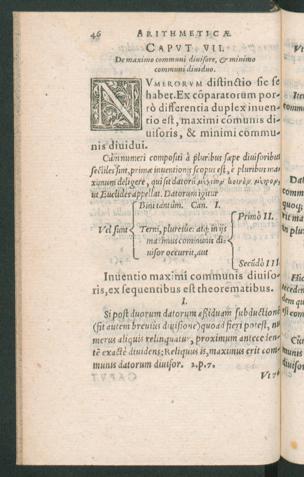 46 ARITHMETICÆ
CAPVT VII.
De maximo communi diuisore, & minimo
communi diuiduo.
NVMERORVM distinctio sic se
habet. Ex cōparatorum por-
rò differentia duplex inuen-
tio est, maximi cōmunis di-
uisoris, & minimi commu-
nis diuidui.
Cùm numeri compositi à pluribus sæpe diuisoribus
sectiles sint, primæ inuentionis scopus est, è pluribus ma-
ximum deligere, qui sit datorū
ut Euclides appellat. Datorum igitur
Bini tantùm. Can. I.
Primò II.
Vel sunt Terni, pluresue: atq; in ijs
maximus communis di-
uisor occurrit, aut
Secūdò III
Inuentio maximi communis diuiso-
ris, ex sequentibus est theorematibus.
I.
Si post duorum datorum aßiduam subductionē
(sit autem breuiùs diuisione) quoad fieri potest, nu-
merus aliquis relinquatur, proximum antece len-
tē exactè diuidens; Reliquus is, maximus erit com-
munis datorum diuisor. 2.p.7.